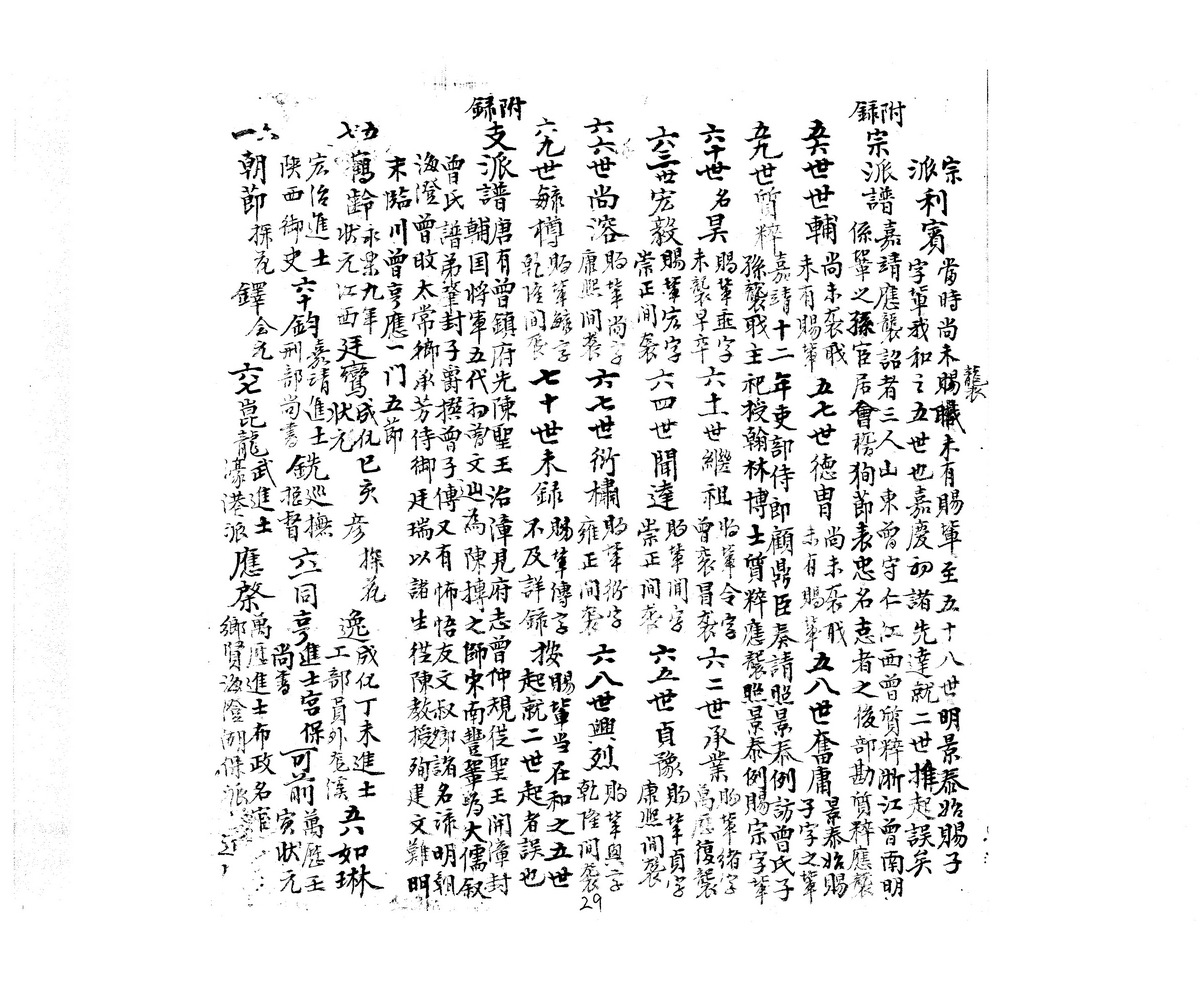 宗派利賓 當時尚未賜職未有賜輩至五十八世明景泰始賜子
字輩我和之五世也嘉慶初諸先達就二世推起誤矣
襲
附錄 宗派譜 嘉靖應襲詔者三人山東曾守仁江西曾質粹浙江曾南明
係鞏之孫宦居會稽狥節表忠名志者之後部勘質粹應襲
五六世世輔 尚未袭職未有賜輩 五七世德冑 尚未袭職未有賜輩 五八世奮庸 景泰始賜子字之輩
五九世質粹 嘉靖十二年吏部侍郎顧鼎臣奏請照景泰例訪曾氏子
孫襲職主祀授翰林博士質粹應襲照景泰例賜宗字輩
六十世名昊 賜輩垂字未襲早卒 六十一世繼祖 賜輩令字曾袭冒袭 六二世承業 賜輩緒字萬應復襲
六三世宏毅 賜輩宏字崇正间袭 六四世聞達 賜輩聞字崇正间袭 六五世貞豫 賜輩貞字康熙间襲
六六世尚溶 賜輩尚字康熙间袭 六七世衍橚 賜輩衍字雍正间袭 六八世興烈 賜輩興字乾隆间襲
六九世毓樽 賜輩毓字乾隆间袭 七十世未録 賜輩傳字不及詳録 按賜輩当在和之五世
起就二世起者誤也
附錄 支派譜 唐有曾鎮府先陳聖王治漳見府志曾仲規從聖王開漳封
輔国將軍五代初曾文迪為陳摶之師宋南豐鞏為大儒叙
曾氏譜弟肇封子爵撰曾子傳又有怖悟友文叔鄉諸名流明朝
海澄曾畋太常鄉承芳侍御廷瑞以諸生從陳教授殉建文難明
末臨川曾亨應一门五節
五七 鶴齡 永樂九年状元江西 廷鸞 成化己亥状元 彦 探花 逸 成化丁未進士工部員外龙溪 五六如琳
宏治進士陝西御史 六十鈞 嘉靖進士刑部尚書 銑 巡撫提督 六一同亨 進士宮保尚書 可前 萬應壬寅状元
六一 朝節 探花 鐸 会元 六七 崑龍 武進士濠港派 應啓 萬應進士布政名宦
鄉贤海澄湖保派
29